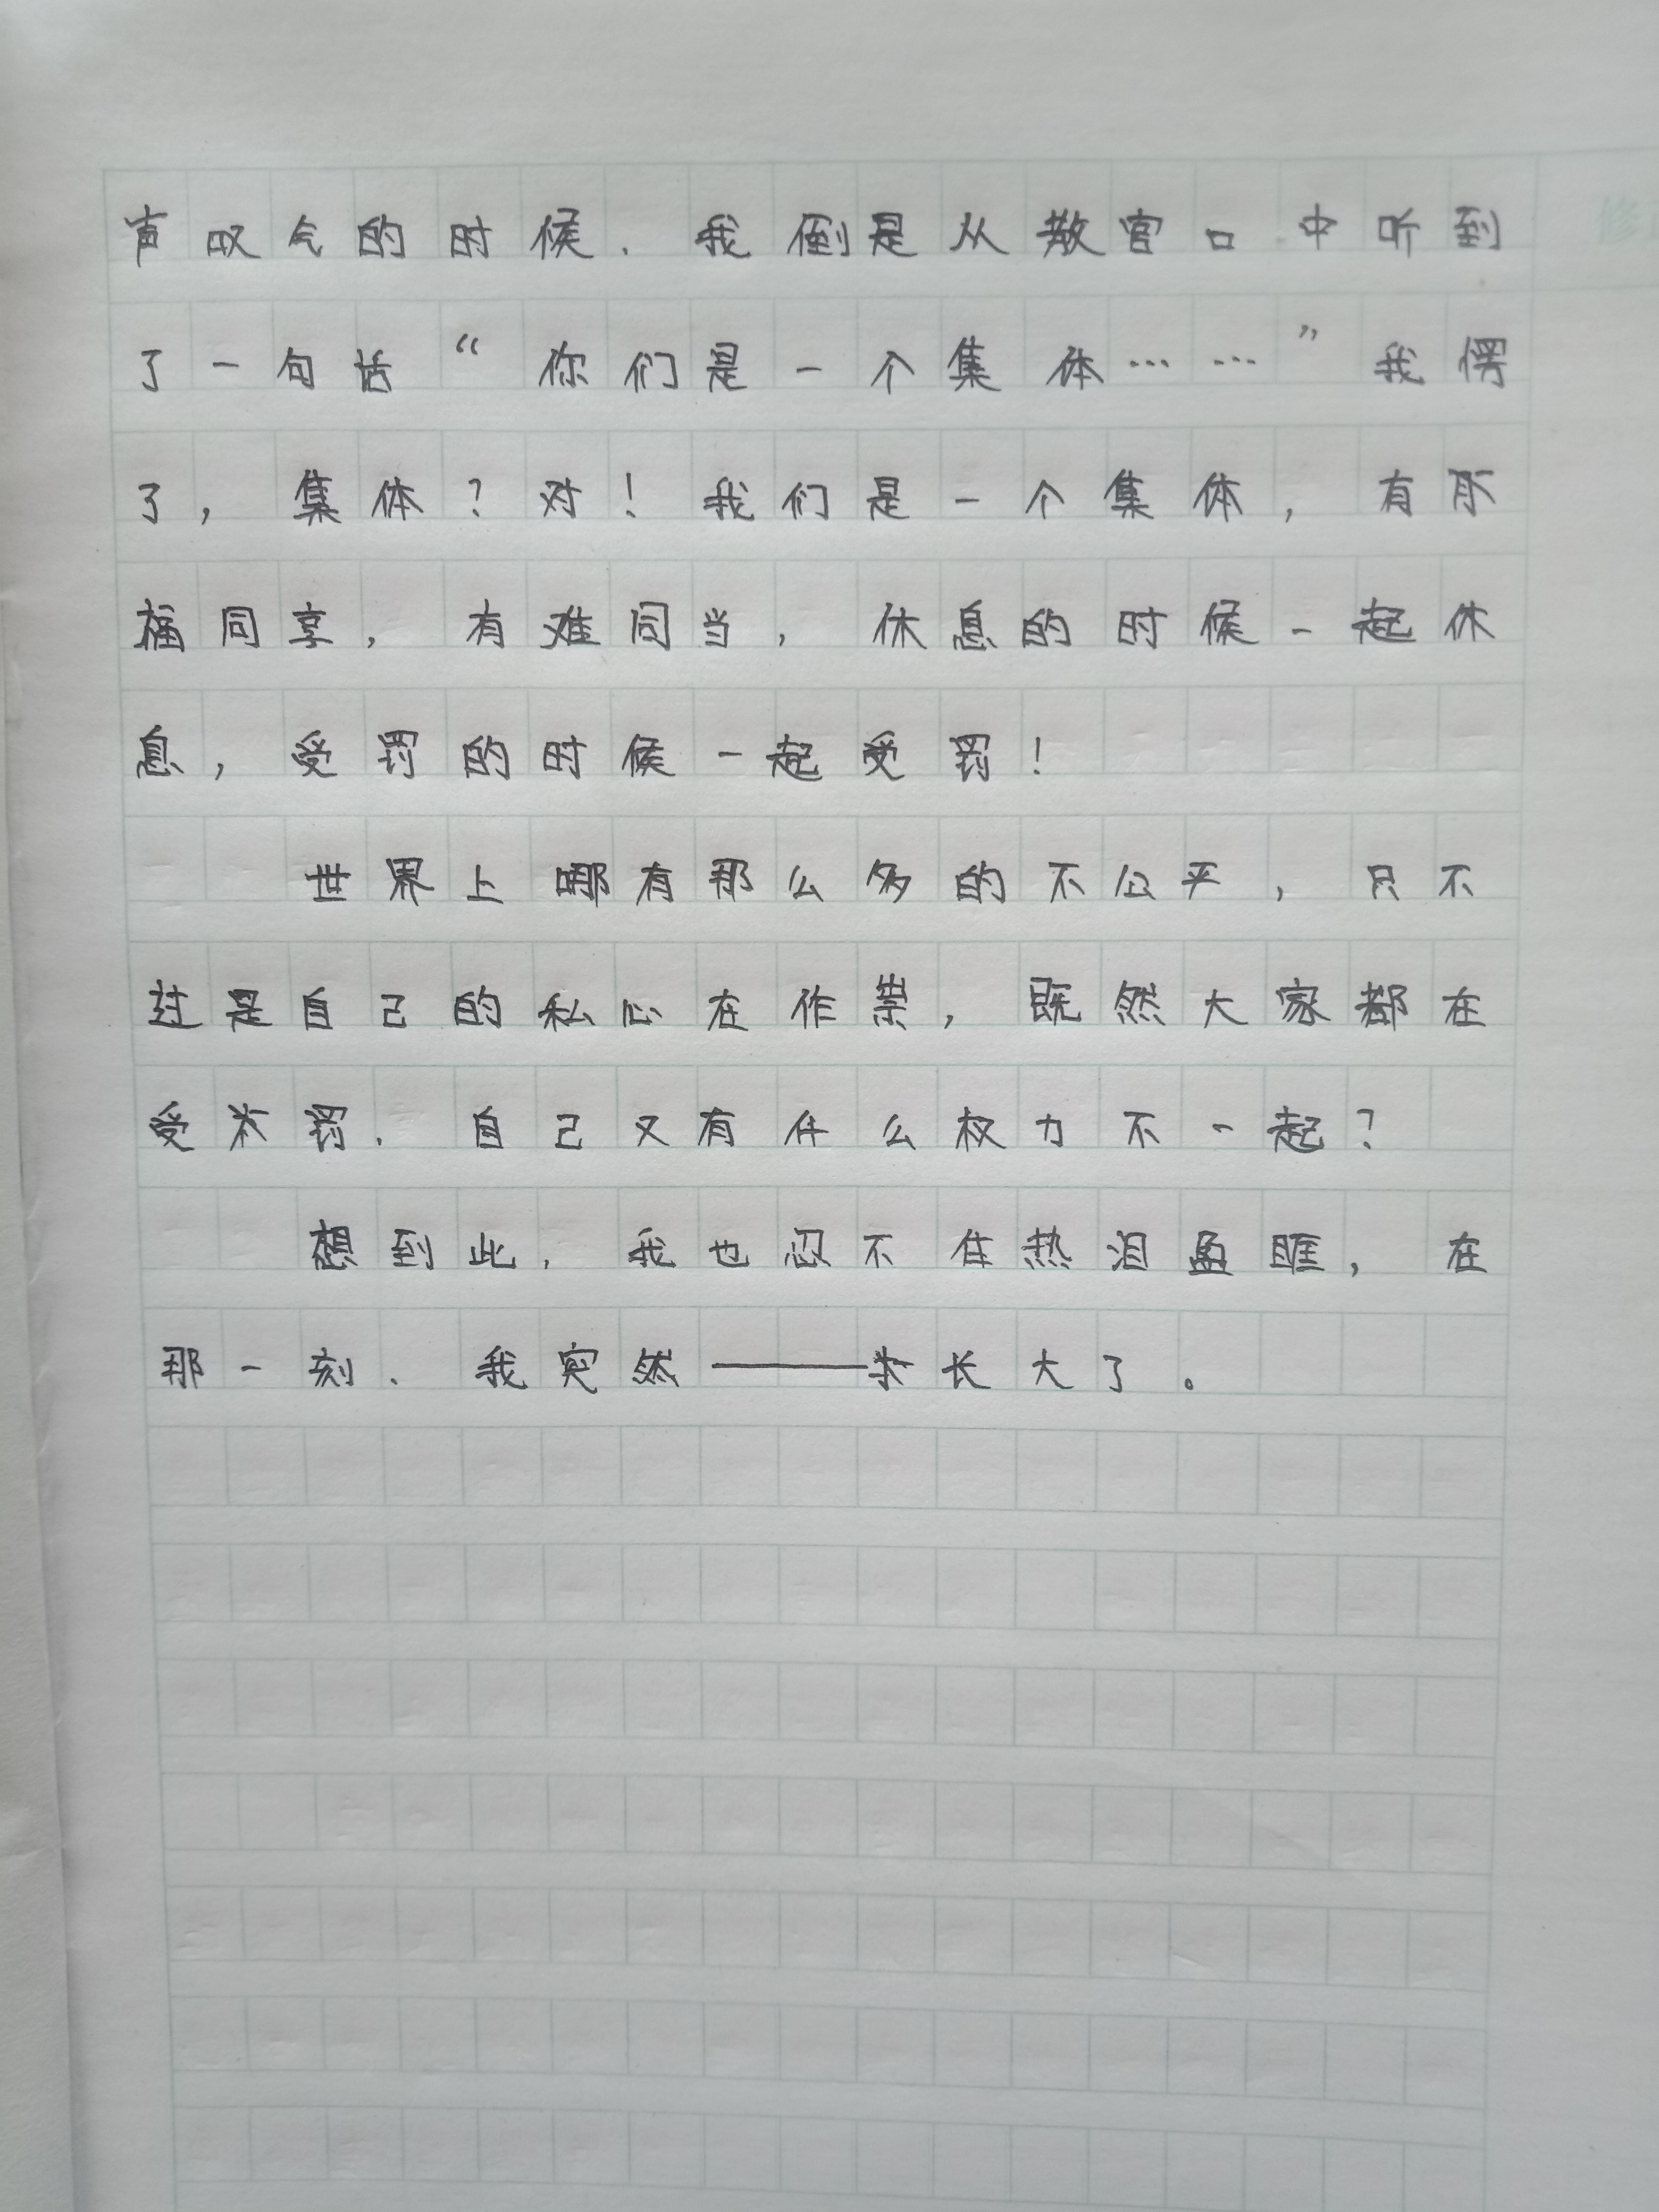 声叹气的时候，我倒是从教官口中听到
了一句话“你们是一个集体……”我愣
了，集体？对！我们是一个集体，有
福同享，有难同当，休息的时候一起休
息，受罚的时候一起受罚！
世界上哪有那么多的不公平，只不
过是自己的私心在作祟，既然大家都在
受罚，自己又有什么权力不一起？
想到此，我也忍不住热泪盈眶，在
那一刻，我突然——长大了。
修